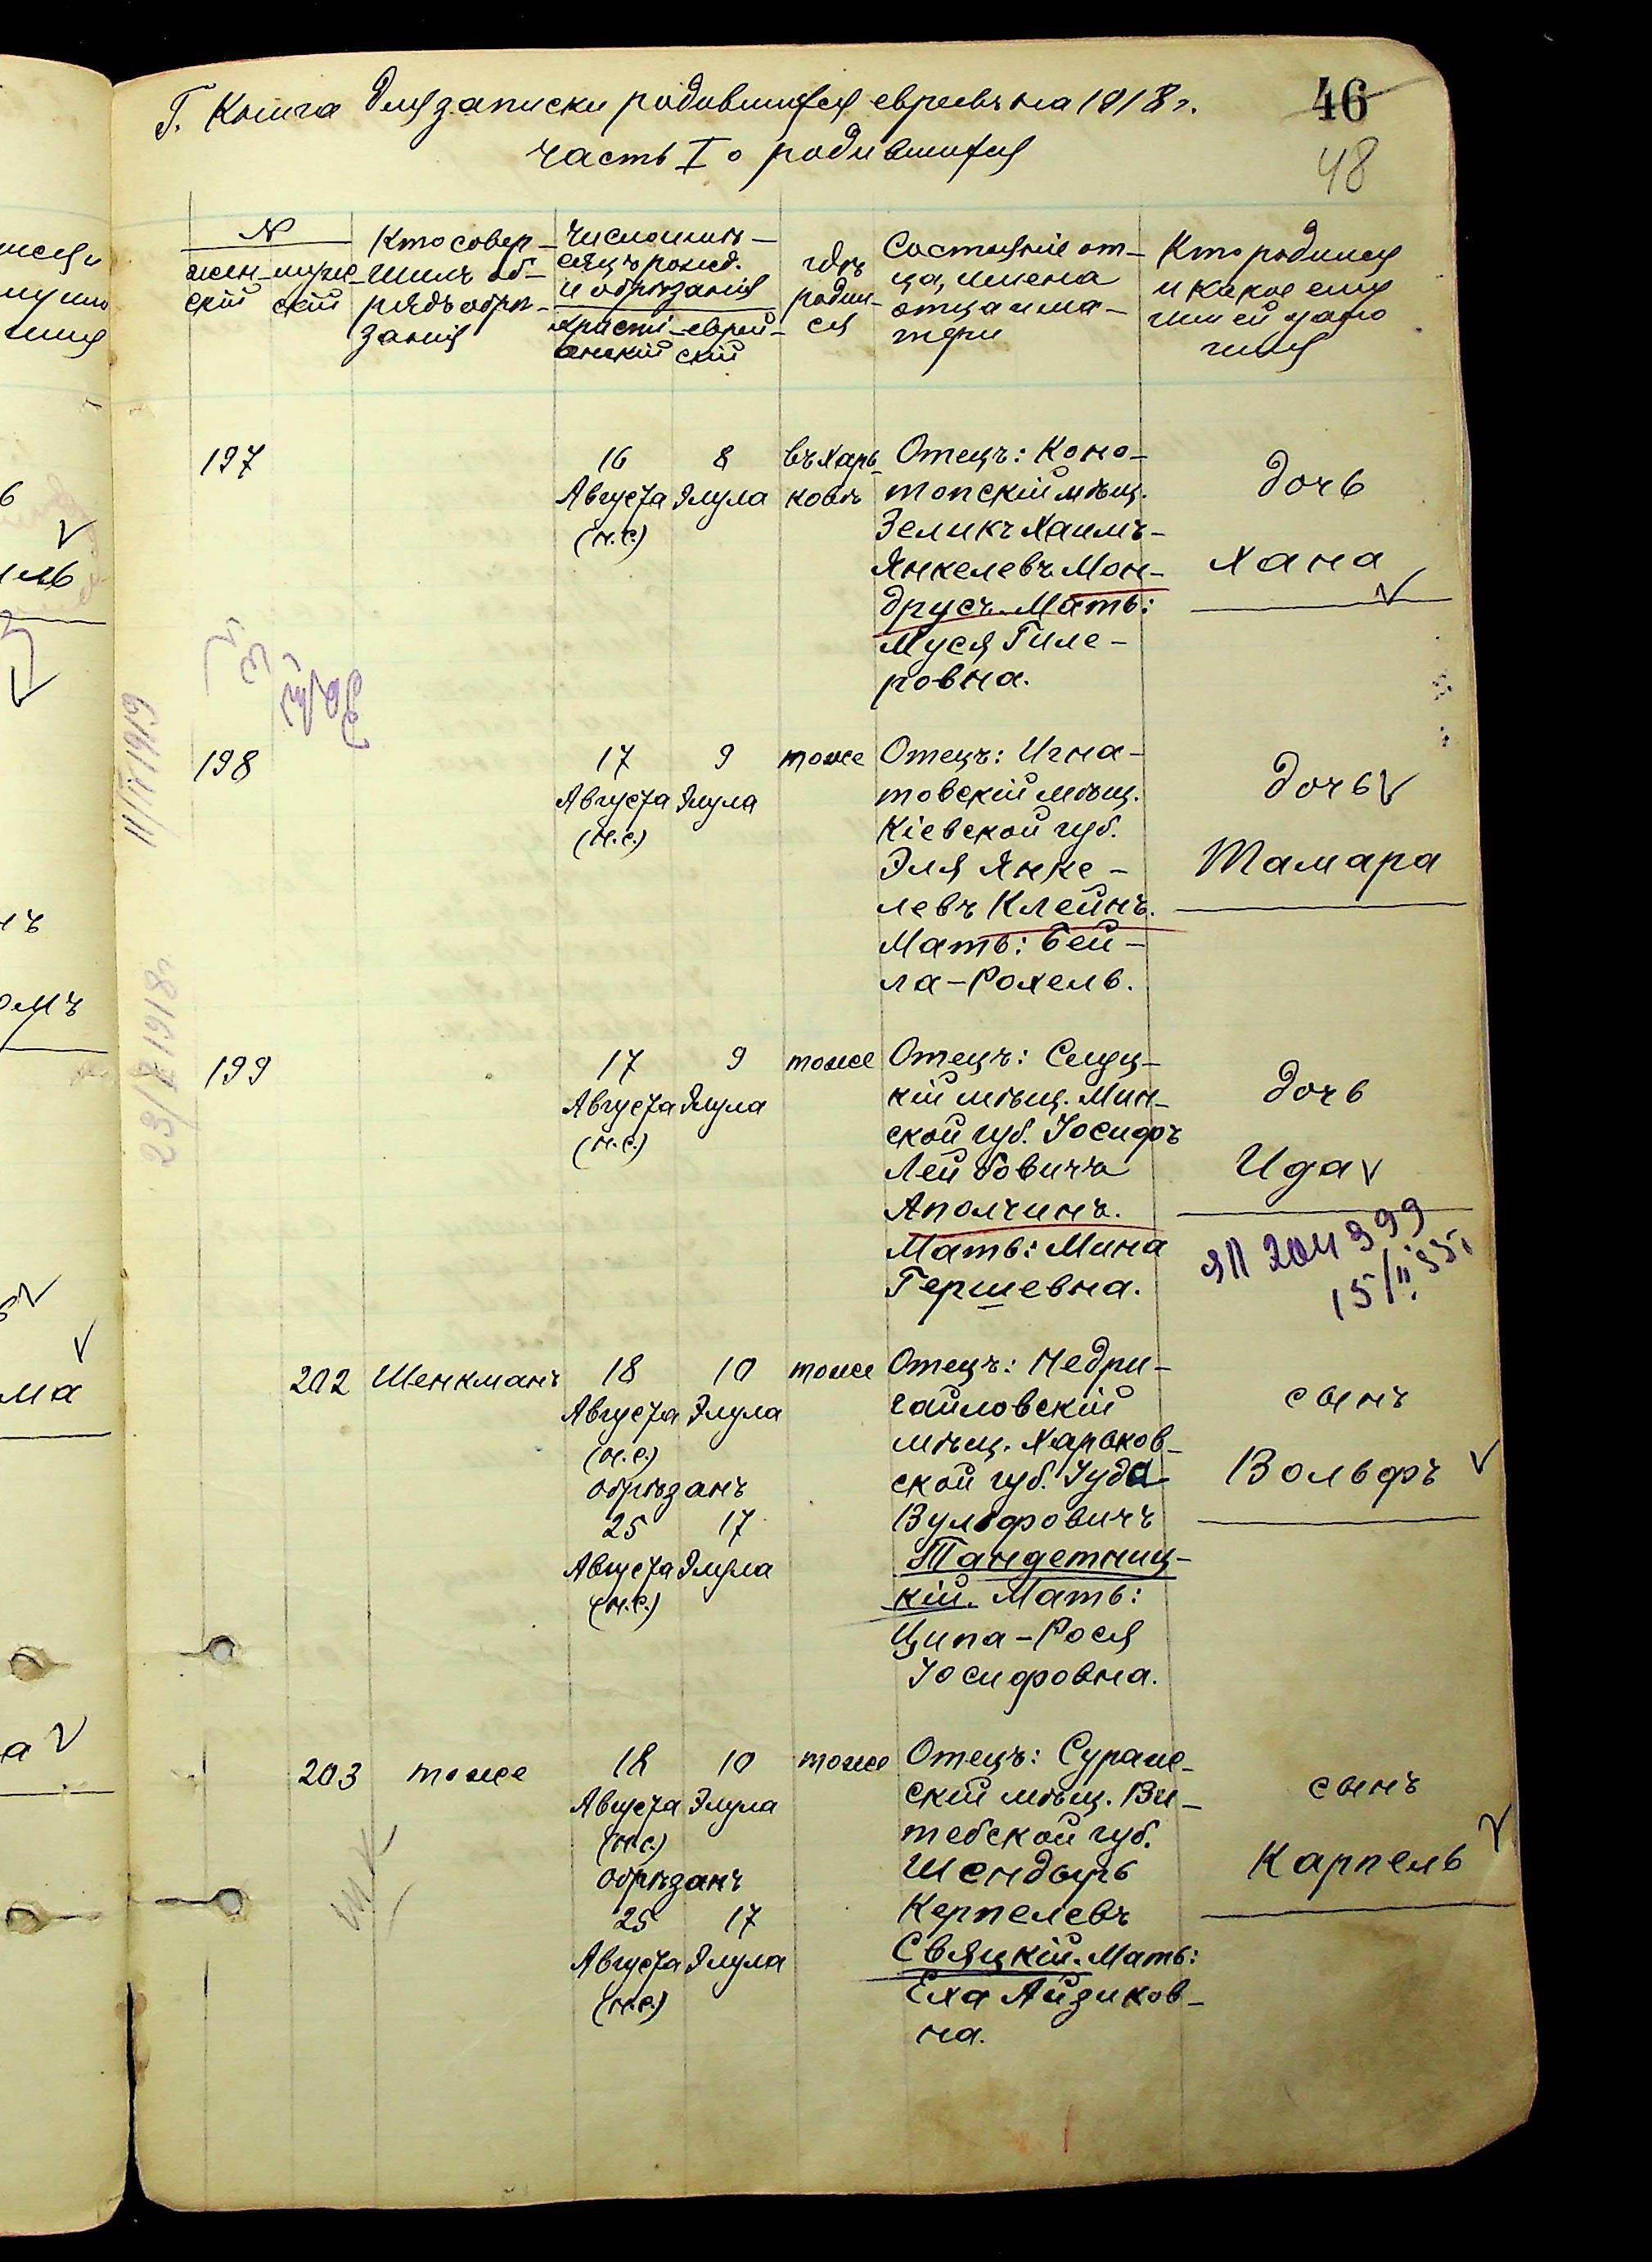 Г. Книга для записки родившихся евреевъ на 1918 г.
46
часть I о родившихся
48
№
жен-
скій
муже-
скій
Кто совер-
шилъ об-
рядъ обрѣ-
занія
Число и мѣ-
сяцъ рожд.
и обрѣзанія
христі-
анскій
еврей-
скій
гдѣ
родил-
ся
Состояніе от-
ца, имена
отца и ма-
тери
Кто родился
и какое ему
или ей дано
имя
197
16
Августа
(н.с.)
8
Элула
въ Харь-
ковѣ
Отецъ: Коно-
топскій мѣщ.
Зеликъ Хаимъ-
Янкелевъ Мон-
друсъ. Мать:
Муся Гиле-
ровна.
дочь
Хана
11/IV 1919
198
17
Августа
(н.с.)
9
Элула
тоже
Отецъ: Игна-
товскій мѣщ.
Кіевской губ.
Эля Янке-
левъ Клейнъ.
Мать: Бей-
ла-Рохель.
дочь
Тамара
23/X 1918 г.
199
17
Августа
(н.с.)
9
Элула
тоже
Отецъ: Слуц-
кій мѣщ. Мин-
ской губ. Іосифъ
Лейбовичъ
Аполчинъ.
Мать: Мина
Гершевна.
дочь
Ида
ЯП 204399
15/II 35 г.
202
Шенкманъ
18
Августа
(н.с.)
10
Элула
обрѣзанъ
25
Августа
(н.с.)
17
Элула
тоже
Отецъ: Недри-
гайловскій
мѣщ. Харьков-
ской губ. Іуда-
Вульфовичъ
Тандетниц-
кій. Мать:
Ципа-Рося
Іосифовна.
сынъ
Вольфъ
203
тоже
18
Августа
(н.с.)
10
Элула
обрѣзанъ
25
Августа
(н.с.)
17
Элула
тоже
Отецъ: Сураже-
скій мѣщ. Ви-
тебской губ.
Шендырь
Керпелевъ
Свяцкій. Мать:
Еха Айзиков-
на.
сынъ
Карпель